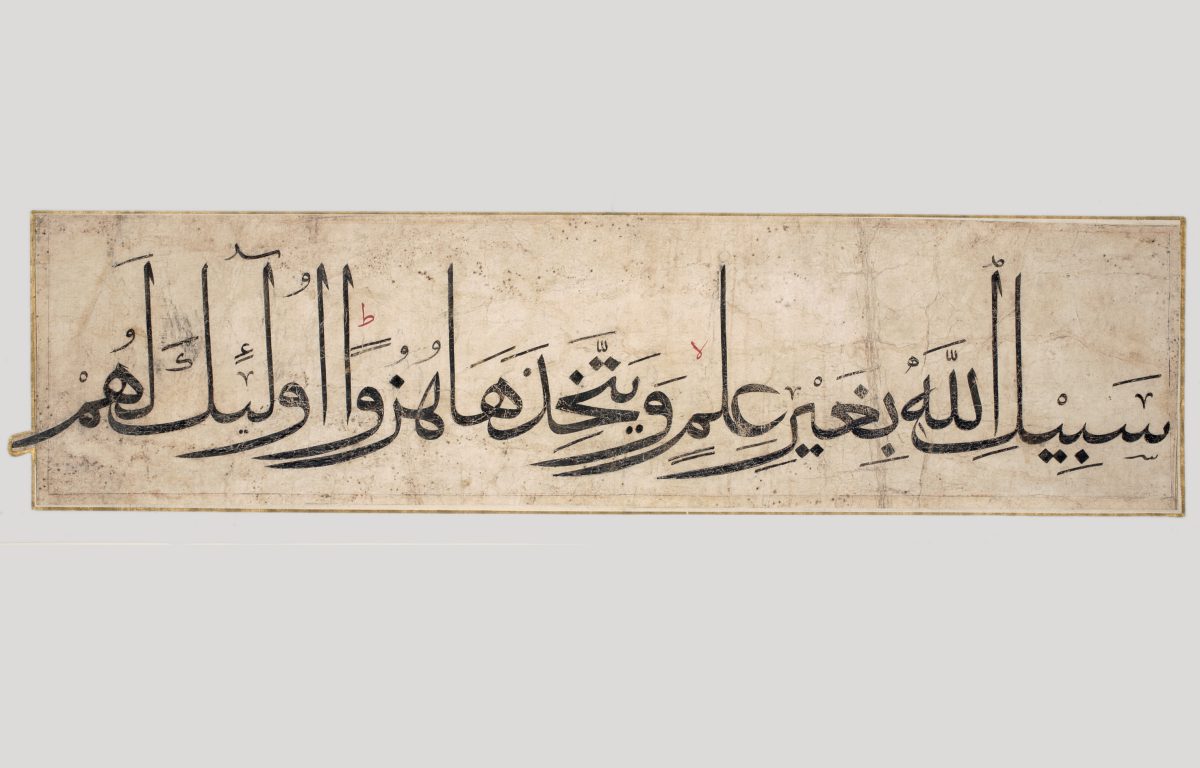 سَبِيْلِ اللّٰهِ بِغَيْرِ عِلمٍ ۙ وَيَتَّخِذَهَا هُزُوًا ؕ اُولٰٓئِكَ لَهُمْ